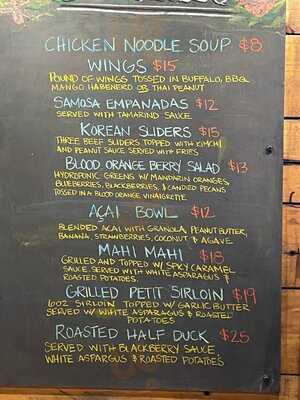 CHICKEN NOODLE SOUP $8
WINGS $15
POUND OF WINGS TOSSED IN BUFFALO, BBQ,
MANGO HABENERO OR THAI PEANUT
SAMOSA EMPANADAS $12
SERVED WITH TAMARIND SAUCE
KOREAN SLIDERS $15
THREE BEEF SLIDERS TOPPED WITH KIMCHI
AND PEANUT SAUCE SERVED WITH FRIES
BLOOD ORANGE BERRY SALAD $13
HYDROPONIC GREENS W/ MANDARIN ORANGES,
BLUEBERRIES, BLACKBERRIES, & CANDIED PECANS
TOSSED IN A BLOOD ORANGE VINAIGRETTE
AÇAI BOWL $12
BLENDED ACAI WITH GRANOLA, PEANUT BUTTER,
BANANA, STRAWBERRIES, COCONUT & AGAVE
MAHI MAHI $18
GRILLED AND TOPPED W/ SPICY CARAMEL
SAUCE. SERVED WITH WHITE ASPARAGUS &
ROASTED POTATOES.
GRILLED PETIT SIRLOIN $19
6OZ SIRLOIN TOPPED W/ GARLIC BUTTER
SERVED W/ WHITE ASPARAGUS & ROASTED
POTATOES
ROASTED HALF DUCK $25
SERVED WITH BLACKBERRY SAUCE
WHITE ASPARGUS & ROASTED POTATOES